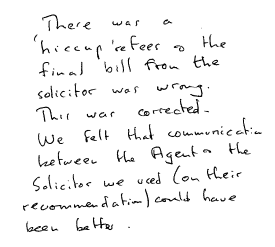 There was a
'hiccup' refees o the
final bill from the
solicitor was wrong.
This was corrected.
We felt that communication
between the Agent o the
Solicitor we used (on their
recommendation) could have
been better.